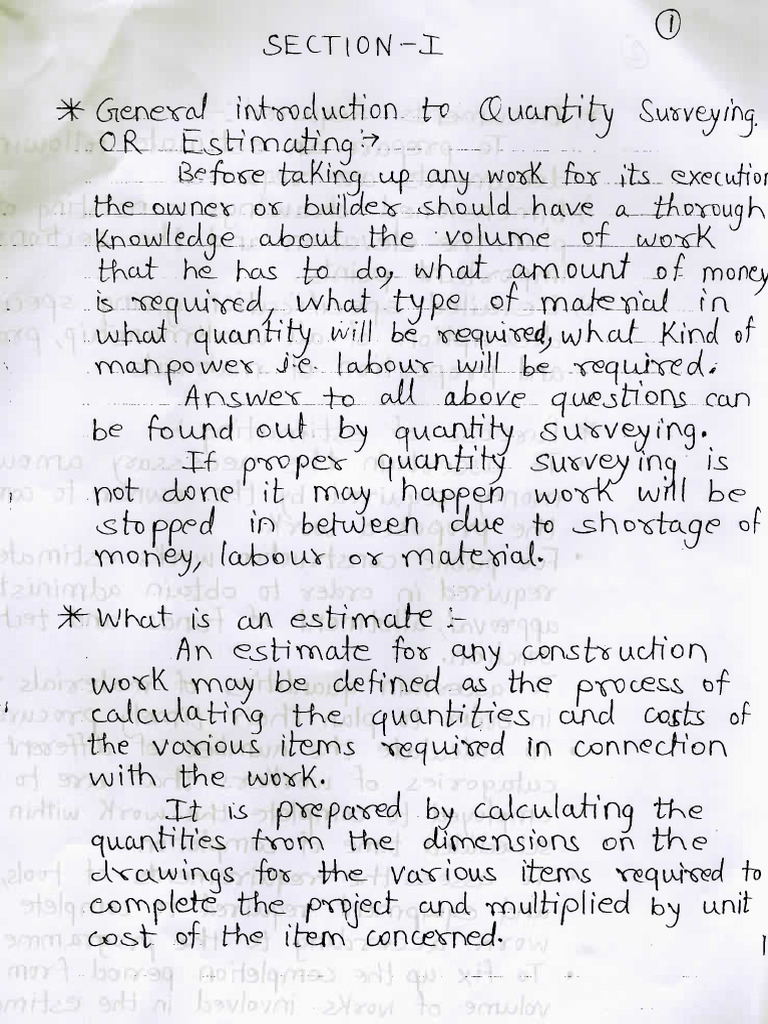 ①
SECTION-I
* General introduction to Quantity Surveying.
OR Estimating:→
Before taking up any work for its execution
the owner or builder should have a thorough
Knowledge about the volume of work
that he has to do, what amount of money
is required, what type of material in
what quantity will be required, what Kind of
manpower i.e. labour will be required.
Answer to all above questions can
be found out by quantity surveying.
If proper quantity surveying is
not done it may happen work will be
stopped in between due to shortage of
money, labour or material.
* What is an estimate :-
An estimate for any construction
work may be defined as the process of
calculating the quantities and costs of
the various items required in connection
with the work.
It is prepared by calculating the
quantities from the dimensions on the
drawings for the various items required to
complete the project and multiplied by unit
cost of the item concerned.